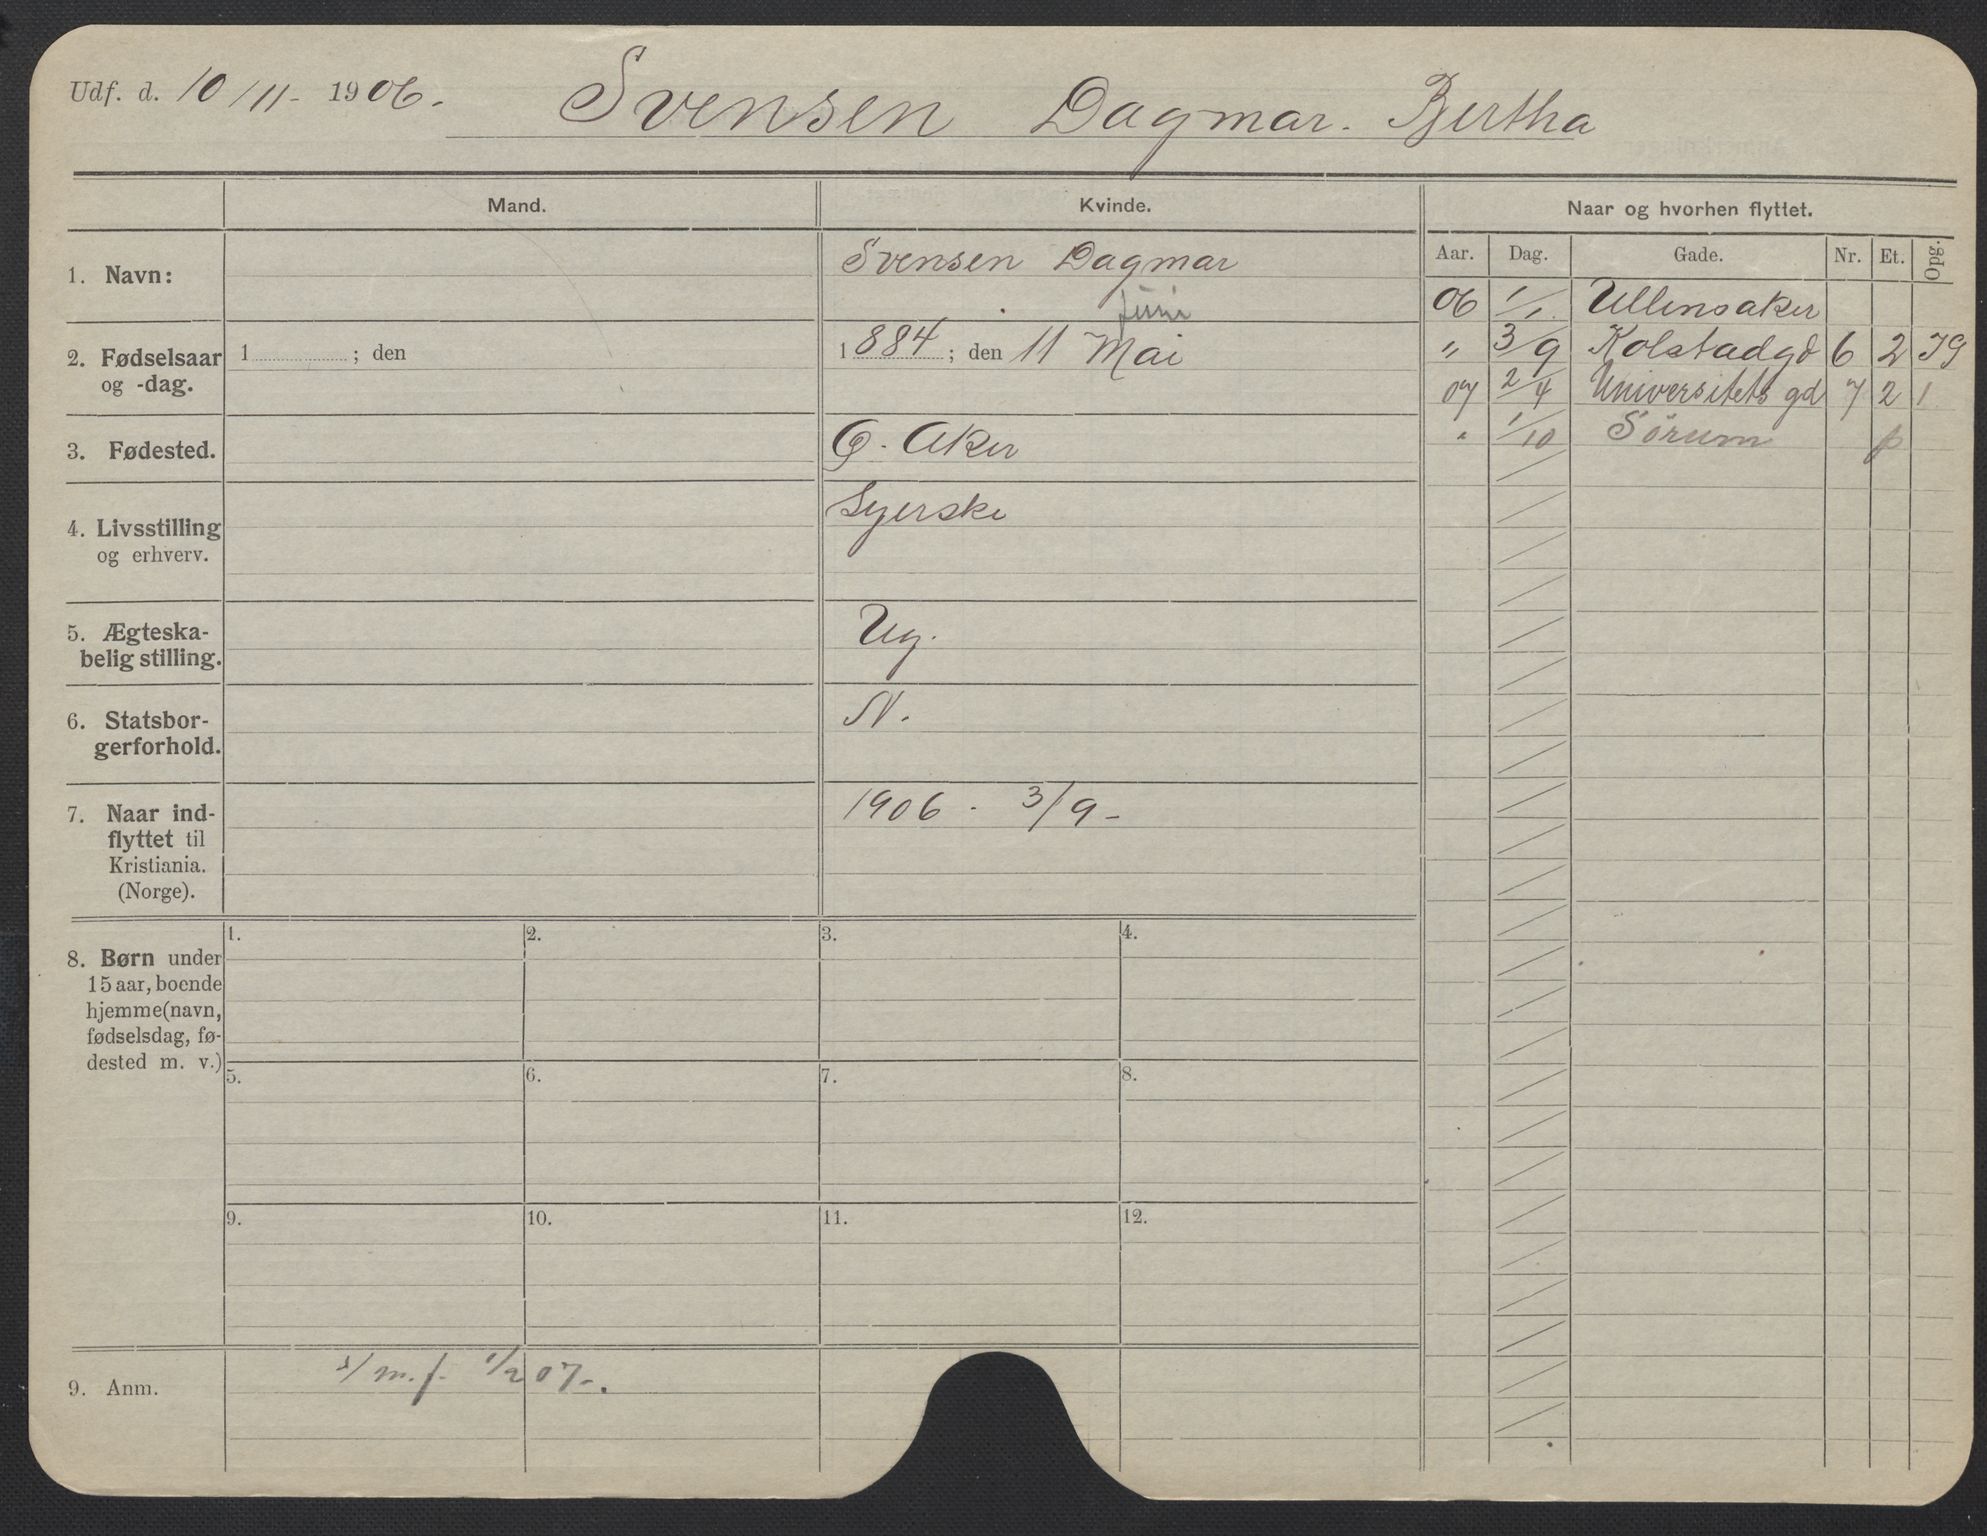 Udf. d. 10/11 - 1906. Svensen Dagmar. Bertha
Mand. Kvinde. Naar og hvorhen flyttet.
Aar. Dag. Gade. Nr. Et. Opg.
1. Navn: Svensen Dagmar
Juni
2. Fødselsaar og -dag.
1 ; den
1884 ; den 11 Mai
3. Fødested. Ø. Aker
4. Livsstilling og erhverv. Syerske
5. Ægteska-
belig stilling. Ug.
6. Statsbor-
gerforhold. N.
7. Naar ind-
flyttet til
Kristiania.
(Norge).
1906 - 3/9 -
06 1/1 Ullensaker
" 3/9 Kolstadgd 6 2 IG
07 2/4 Universitets gd 7 2 1
" 1/10 Sørum
8. Børn under
15 aar, boende
hjemme (navn,
fødselsdag, fø-
dested m. v.)
1. 2. 3. 4.
5. 6. 7. 8.
9. 10. 11. 12.
9. Anm. m.f. 1/2 07-.